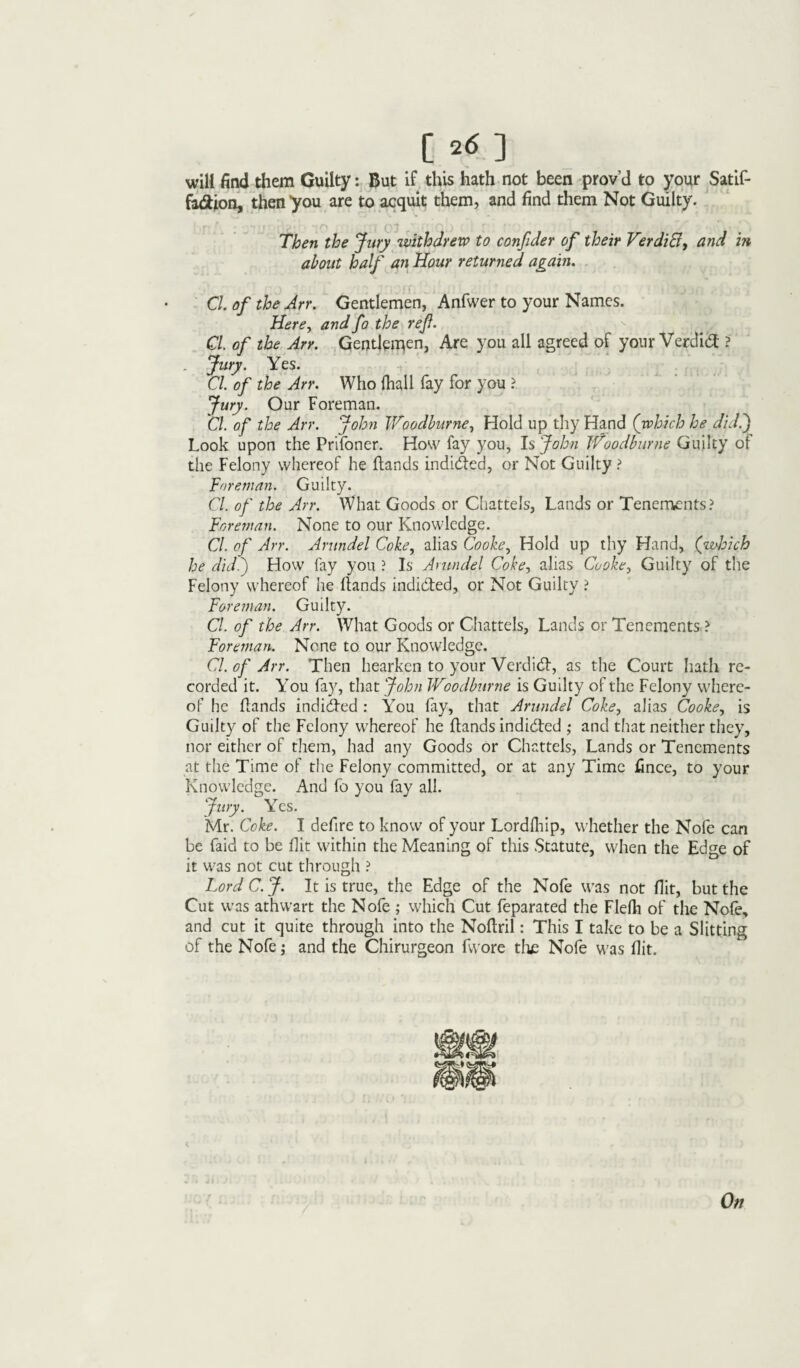 [ 26 ]
will find them Guilty: But if this hath not been prov'd to your Satiſ-
faction, then you are to acquit them, and find them Not Guilty.
Then the Jury withdrew to conſider of their Verdict, and in
about half an Hour returned again.
Cl. of the Arr. Gentlemen, Anſwer to your Names.
Here, and ſo the reſt.
Cl. of the Arr. Gentlemen, Are you all agreed of your Verdict ?
Jury. Yes.
Cl. of the Arr. Who ſhall ſay for you ?
Jury. Our Foreman.
Cl. of the Arr. John Woodburne, Hold up thy Hand (which he did.)
Look upon the Priſoner. How ſay you, Is John Woodburne Guilty of
the Felony whereof he ſtands indicted, or Not Guilty ?
Foreman. Guilty.
Cl. of the Arr. What Goods or Chattels, Lands or Tenements?
Foreman. None to our Knowledge.
Cl. of Arr. Arundel Coke, alias Cooke, Hold up thy Hand, (which
he did.) How ſay you ? Is Arundel Coke, alias Cooke, Guilty of the
Felony whereof he ſtands indicted, or Not Guilty ?
Foreman. Guilty.
Cl. of the Arr. What Goods or Chattels, Lands or Tenements ?
Foreman. None to our Knowledge.
Cl. of Arr. Then hearken to your Verdict, as the Court hath re-
corded it. You ſay, that John Woodburne is Guilty of the Felony where-
of he ſtands indicted : You ſay, that Arundel Coke, alias Cooke, is
Guilty of the Felony whereof he ſtands indicted ; and that neither they,
nor either of them, had any Goods or Chattels, Lands or Tenements
at the Time of the Felony committed, or at any Time ſince, to your
Knowledge. And ſo you ſay all.
Jury. Yes.
Mr. Coke. I deſire to know of your Lordſhip, whether the Noſe can
be ſaid to be ſlit within the Meaning of this Statute, when the Edge of
it was not cut through ?
Lord C. J. It is true, the Edge of the Noſe was not ſlit, but the
Cut was athwart the Noſe ; which Cut ſeparated the Fleſh of the Noſe,
and cut it quite through into the Noſtril : This I take to be a Slitting
of the Noſe ; and the Chirurgeon ſwore the Noſe was ſlit.
On